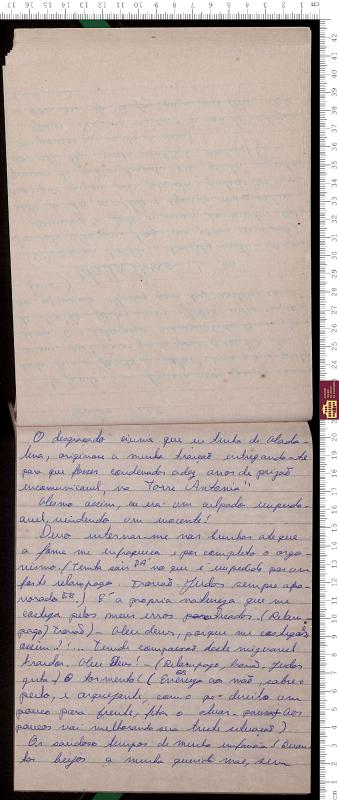 O desgraçado ciume que eu tinha de Mada-
lena, originou a minha traição entregando-te
para que fosses condenado a dez anos de prizão
incomunicavel, na "Torre Antonia"!
Mesmo assim, eu era um culpado imperdo-
avel, vendendo um inocente!
Devo internar-me nas tumbas até que
a fome me enfraqueça e por completo o orga-
nismo. (Tenta sair DA no que é impedido por um
forte relampago. Trovão. Judas sempre apa-
vorado EE.) É a propria natureza que me
castiga pelos meus erros praticados. (Relam-
pago) (Trovão) - Meu deus, porque me castigas
assim?!... Tende compaixão deste miseravel
traidor. Meu Deus! - (Relampago, trovão. Judas
grita) Ó tormento! ( a mão, sobre o
peito, e arquejante, com o pé direito um
pouco para frente, fita o olhar. Aos
poucos vai melhorando sua triste situação)
Os saudosos tempos de minha infancia! Quan-
tos beijos a minha querida mãe, sem